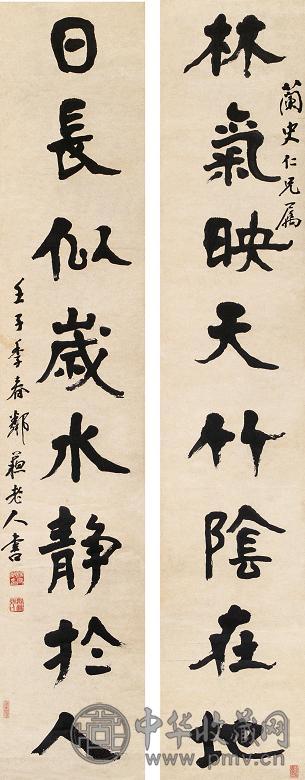 蘭史仁兄属
林氣映天竹陰在地
日長似歲水静於人
壬子季春鄰蘇老人書
中华收藏网
pmv.cn